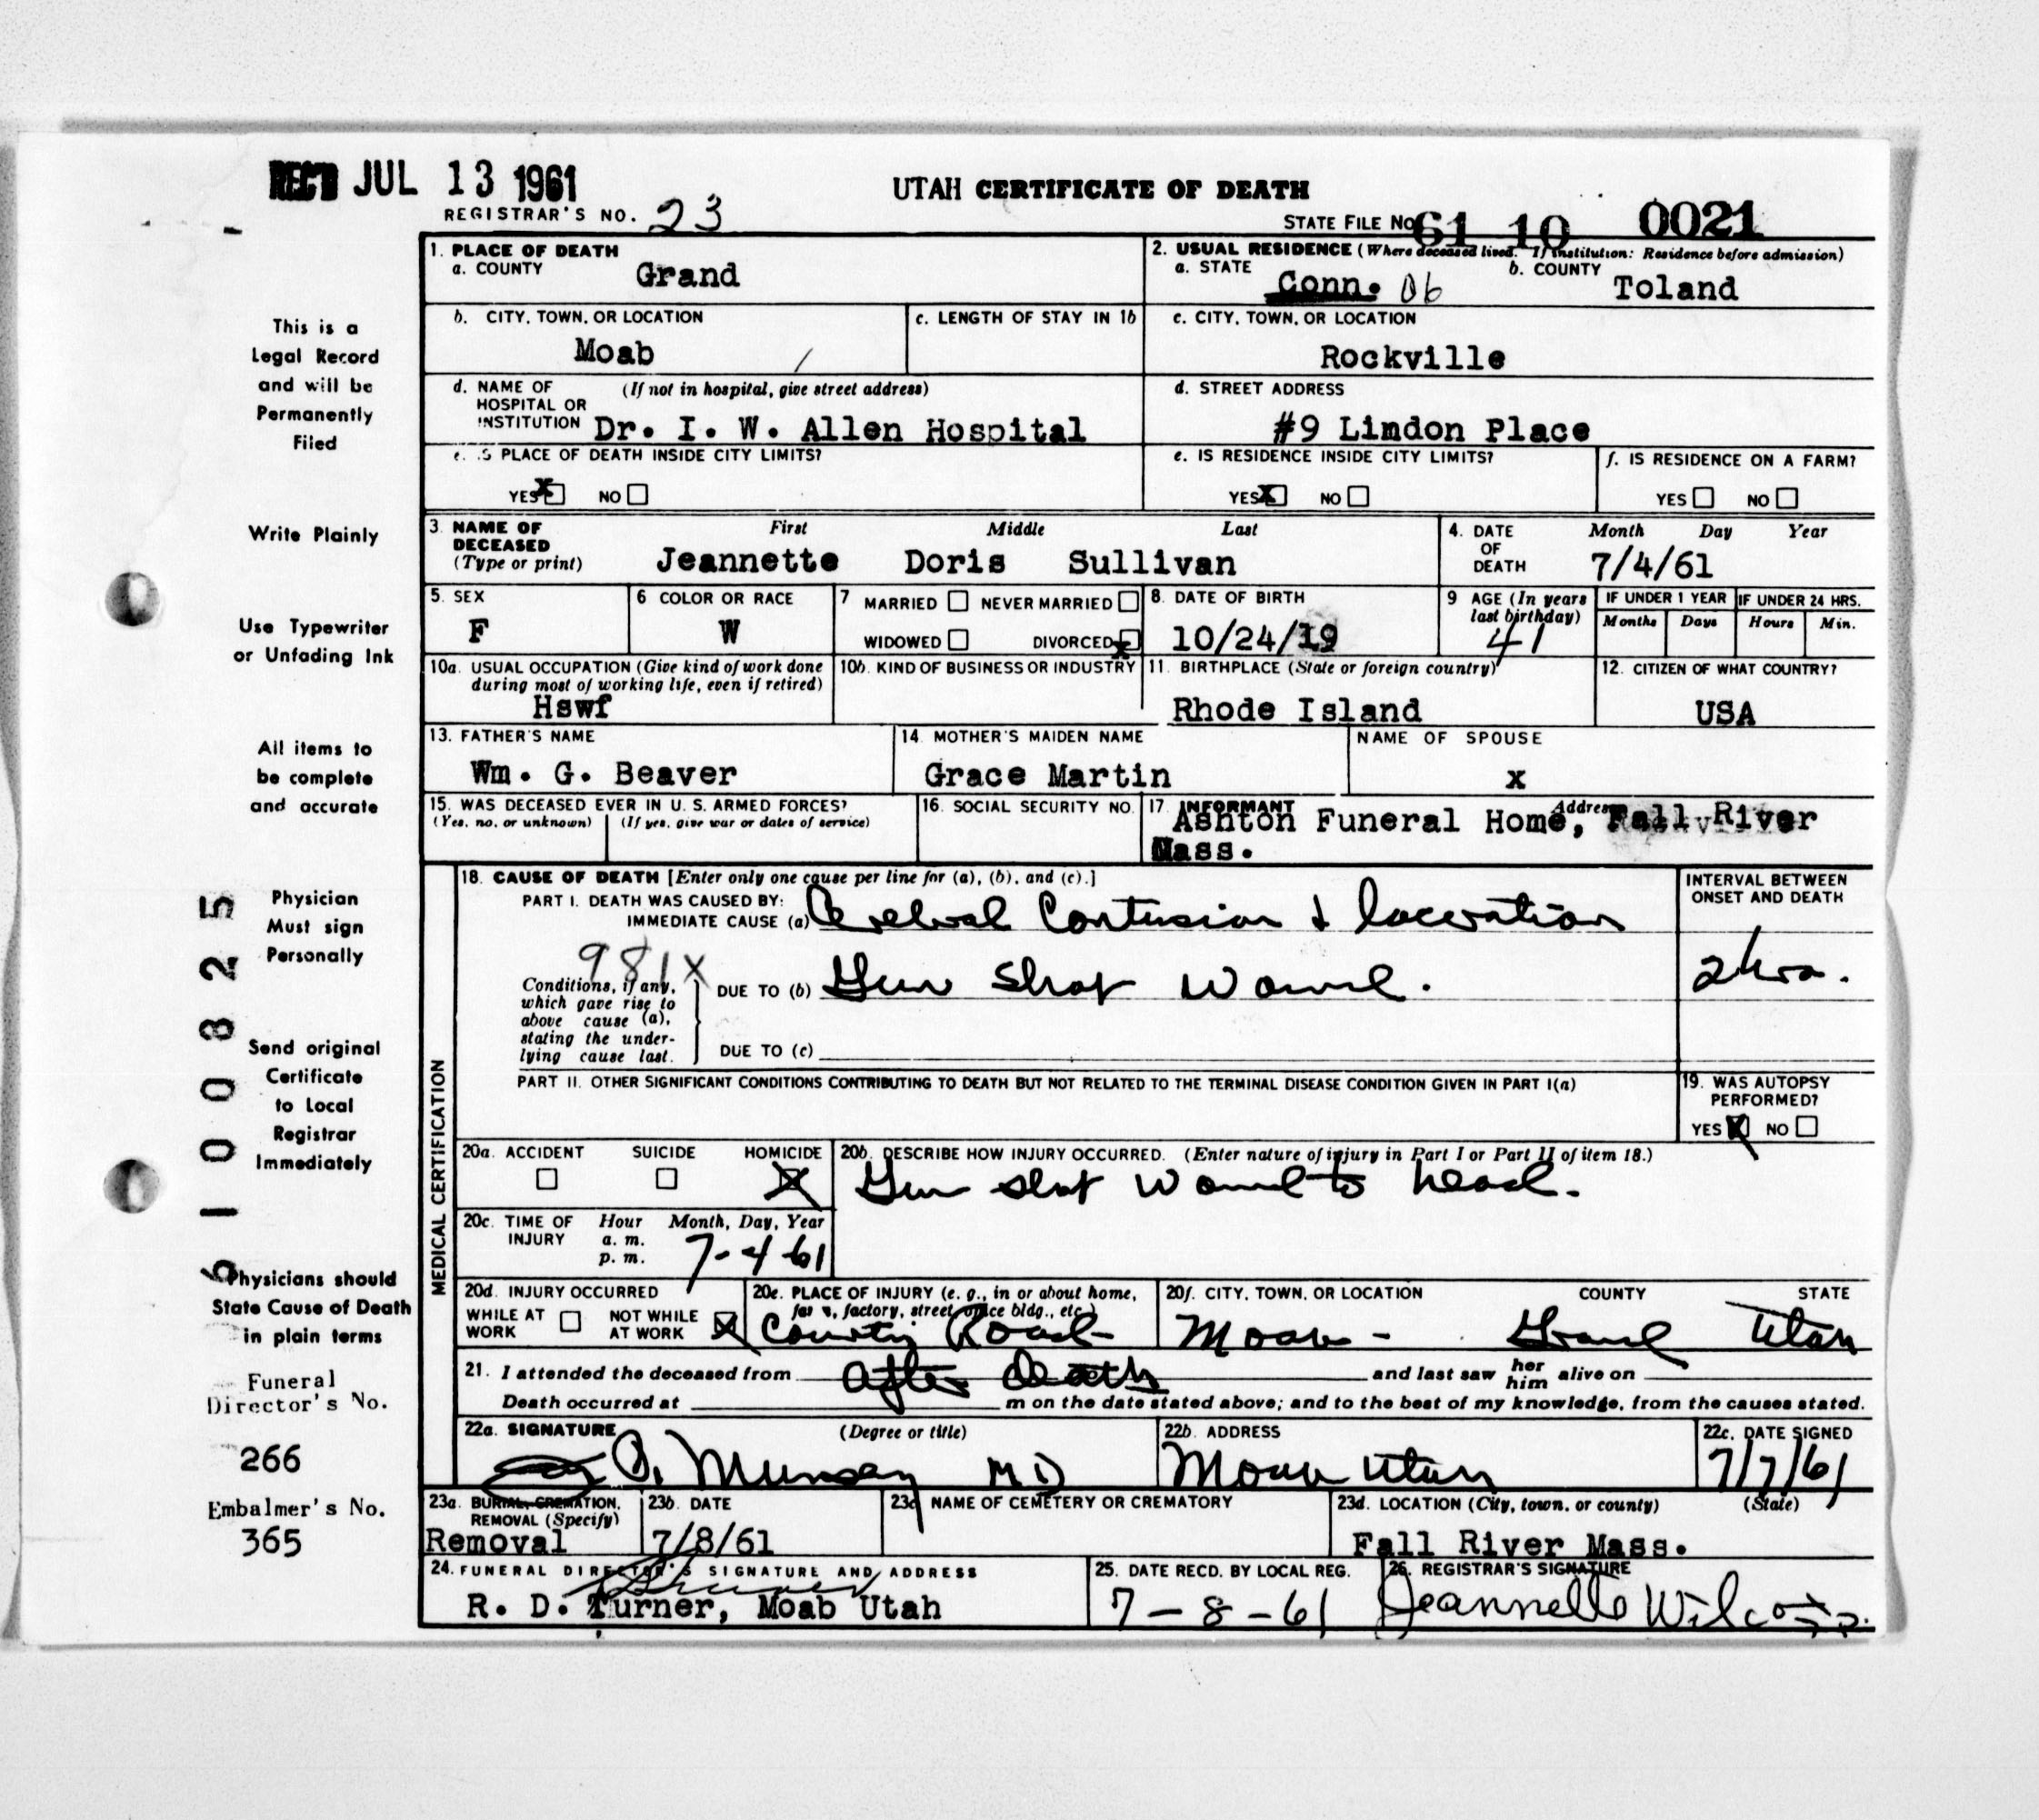 REC'D JUL 13 1961
UTAH CERTIFICATE OF DEATH
REGISTRAR'S NO. 23
STATE FILE No 61 10 0021
1. PLACE OF DEATH
a. COUNTY Grand
2. USUAL RESIDENCE (Where deceased lived. If institution: Residence before admission)
a. STATE Conn. 06 b. COUNTY Toland
b. CITY, TOWN, OR LOCATION Moab
c. LENGTH OF STAY IN 1b
c. CITY, TOWN, OR LOCATION Rockville
d. NAME OF HOSPITAL OR INSTITUTION (If not in hospital, give street address) Dr. I. W. Allen Hospital
d. STREET ADDRESS #9 Lindon Place
e. IS PLACE OF DEATH INSIDE CITY LIMITS?
YES X NO
e. IS RESIDENCE INSIDE CITY LIMITS?
YES X NO
f. IS RESIDENCE ON A FARM?
YES NO
3. NAME OF DECEASED (Type or print) First Middle Last
Jeannette Doris Sullivan
4. DATE OF DEATH Month Day Year
7/4/61
5. SEX F
6 COLOR OR RACE W
7 MARRIED NEVER MARRIED
WIDOWED DIVORCED X
8. DATE OF BIRTH 10/24/19
9 AGE (In years last birthday) 41
IF UNDER 1 YEAR Months Days
IF UNDER 24 HRS. Hours Min.
10a. USUAL OCCUPATION (Give kind of work done during most of working life, even if retired)
Hswf
10b. KIND OF BUSINESS OR INDUSTRY
11. BIRTHPLACE (State or foreign country)
Rhode Island
12. CITIZEN OF WHAT COUNTRY?
USA
13. FATHER'S NAME
Wm. G. Beaver
14. MOTHER'S MAIDEN NAME
Grace Martin
NAME OF SPOUSE
x
15. WAS DECEASED EVER IN U. S. ARMED FORCES?
(Yes, no, or unknown) (If yes, give war or dates of service)
16. SOCIAL SECURITY NO.
17. INFORMANT Address
Ashton Funeral Home, Fall River
Mass.
MEDICAL CERTIFICATION
18. CAUSE OF DEATH [Enter only one cause per line for (a), (b), and (c).]
PART I. DEATH WAS CAUSED BY:
IMMEDIATE CAUSE (a) Cerebral Contusion & laceration
981X
Conditions, if any, which gave rise to above cause (a), stating the underlying cause last.
DUE TO (b) Gun Shot Wound.
DUE TO (c)
INTERVAL BETWEEN ONSET AND DEATH
2 hrs.
PART II. OTHER SIGNIFICANT CONDITIONS CONTRIBUTING TO DEATH BUT NOT RELATED TO THE TERMINAL DISEASE CONDITION GIVEN IN PART I(a)
19. WAS AUTOPSY PERFORMED?
YES X NO
20a. ACCIDENT SUICIDE HOMICIDE X
20b. DESCRIBE HOW INJURY OCCURRED. (Enter nature of injury in Part I or Part II of item 18.)
Gun shot wound to head.
20c. TIME OF INJURY Hour Month, Day, Year
a. m.
p. m. 7-4-61
20d. INJURY OCCURRED
WHILE AT WORK NOT WHILE AT WORK X
20e. PLACE OF INJURY (e. g., in or about home, farm, factory, street, office bldg., etc.)
County Road
20f. CITY, TOWN, OR LOCATION COUNTY STATE
Moab - Grand Utah
21. I attended the deceased from after death and last saw her him alive on
Death occurred at m on the date stated above; and to the best of my knowledge, from the causes stated.
22a. SIGNATURE (Degree or title)
Munsey MD
22b. ADDRESS
Moab Utah
22c. DATE SIGNED
7/7/61
23a. BURIAL, CREMATION, REMOVAL (Specify)
Removal
23b. DATE
7/8/61
23c NAME OF CEMETERY OR CREMATORY
23d. LOCATION (City, town, or county) (State)
Fall River Mass.
24. FUNERAL DIRECTOR'S SIGNATURE AND ADDRESS
R. D. Turner, Moab Utah
25. DATE RECD. BY LOCAL REG.
7-8-61
26. REGISTRAR'S SIGNATURE
Jeannette Wilcox
This is a
Legal Record
and will be
Permanently
Filed
Write Plainly
Use Typewriter
or Unfading Ink
All items to
be complete
and accurate
Physician
Must sign
Personally
Send original
Certificate
to Local
Registrar
Immediately
Physicians should
State Cause of Death
in plain terms
Funeral
Director's No.
266
Embalmer's No.
365
6100825